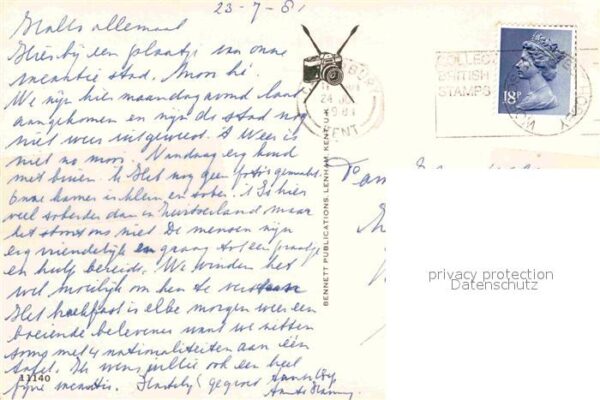 23-7-81
Hallo allemaal
Hierbij een plaatje van onze
vacantie stad. Mooi hé.
We zijn hier maandagavond laat
aangekomen en zijn de stad nog
niet weer uitgeweest. 't Weer is
niet zo mooi. Vandaag erg koud
met buien. Heb nog geen foto's gemaakt.
Onze kamer is klein en sober. 't Is hier
veel soberder dan in maar
het stoort ons niet. De mensen zijn
erg vriendelijk en graag tot een praatje
en hulp bereid. We vinden het
wel moeilijk om hen te verstaan
Het is elke morgen weer een
boeiende belevenis want we zitten
soms met 4 nationaliteiten aan één
tafel. Ik wens jullie ook een heel
fijne vacantie. Hartelijk gegroet
11140
BENNETT PUBLICATIONS, LENHAM, KENT, U.K.
24
1981
KENT
COLLECT
BRITISH
STAMPS
18P
Fam
privacy protection
Datenschutz